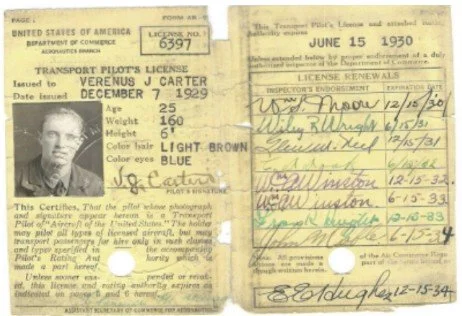 PAGE 1
FORM AB-9
UNITED STATES OF AMERICA
DEPARTMENT OF COMMERCE
AERONAUTICS BRANCH
LICENSE NO.
6397
TRANSPORT PILOT'S LICENSE
Issued to VERENUS J CARTER
Date issued DECEMBER 7 1929
Age 25
Weight 160
Height 6'
Color hair LIGHT BROWN
Color eyes BLUE
V.J. Carter
PILOT'S SIGNATURE
This Certifies, That the pilot whose photograph
and signature appear hereon is a Transport
Pilot of "Aircraft of the United States." The holder
may pilot all types of licensed aircraft, but may
transport passengers for hire only in such classes
and types specified in the accompanying
Pilot's Rating Authority which is
made a part hereof.
Unless sooner suspended or revoked,
this license and rating authority expires as
indicated on pages 5 and 6 hereof.
ASSISTANT SECRETARY OF COMMERCE FOR AERONAUTICS
This Transport Pilot's License and attached
Authority expires
JUNE 15 1930
Unless extended below by proper endorsement of a duly
authorized inspector of the Department of Commerce.
LICENSE RENEWALS
INSPECTOR'S ENDORSEMENT EXPIRATION DATE
Moore 12/15/30
Wiley R Wright 6/15/31
12/15/31
Wm Winston 12-15-32
Wm Winston 6-15-33
12-15-33
John M 6-15-34
Note: All provisions of the Air Commerce
part of
E E Hughes 12-15-34